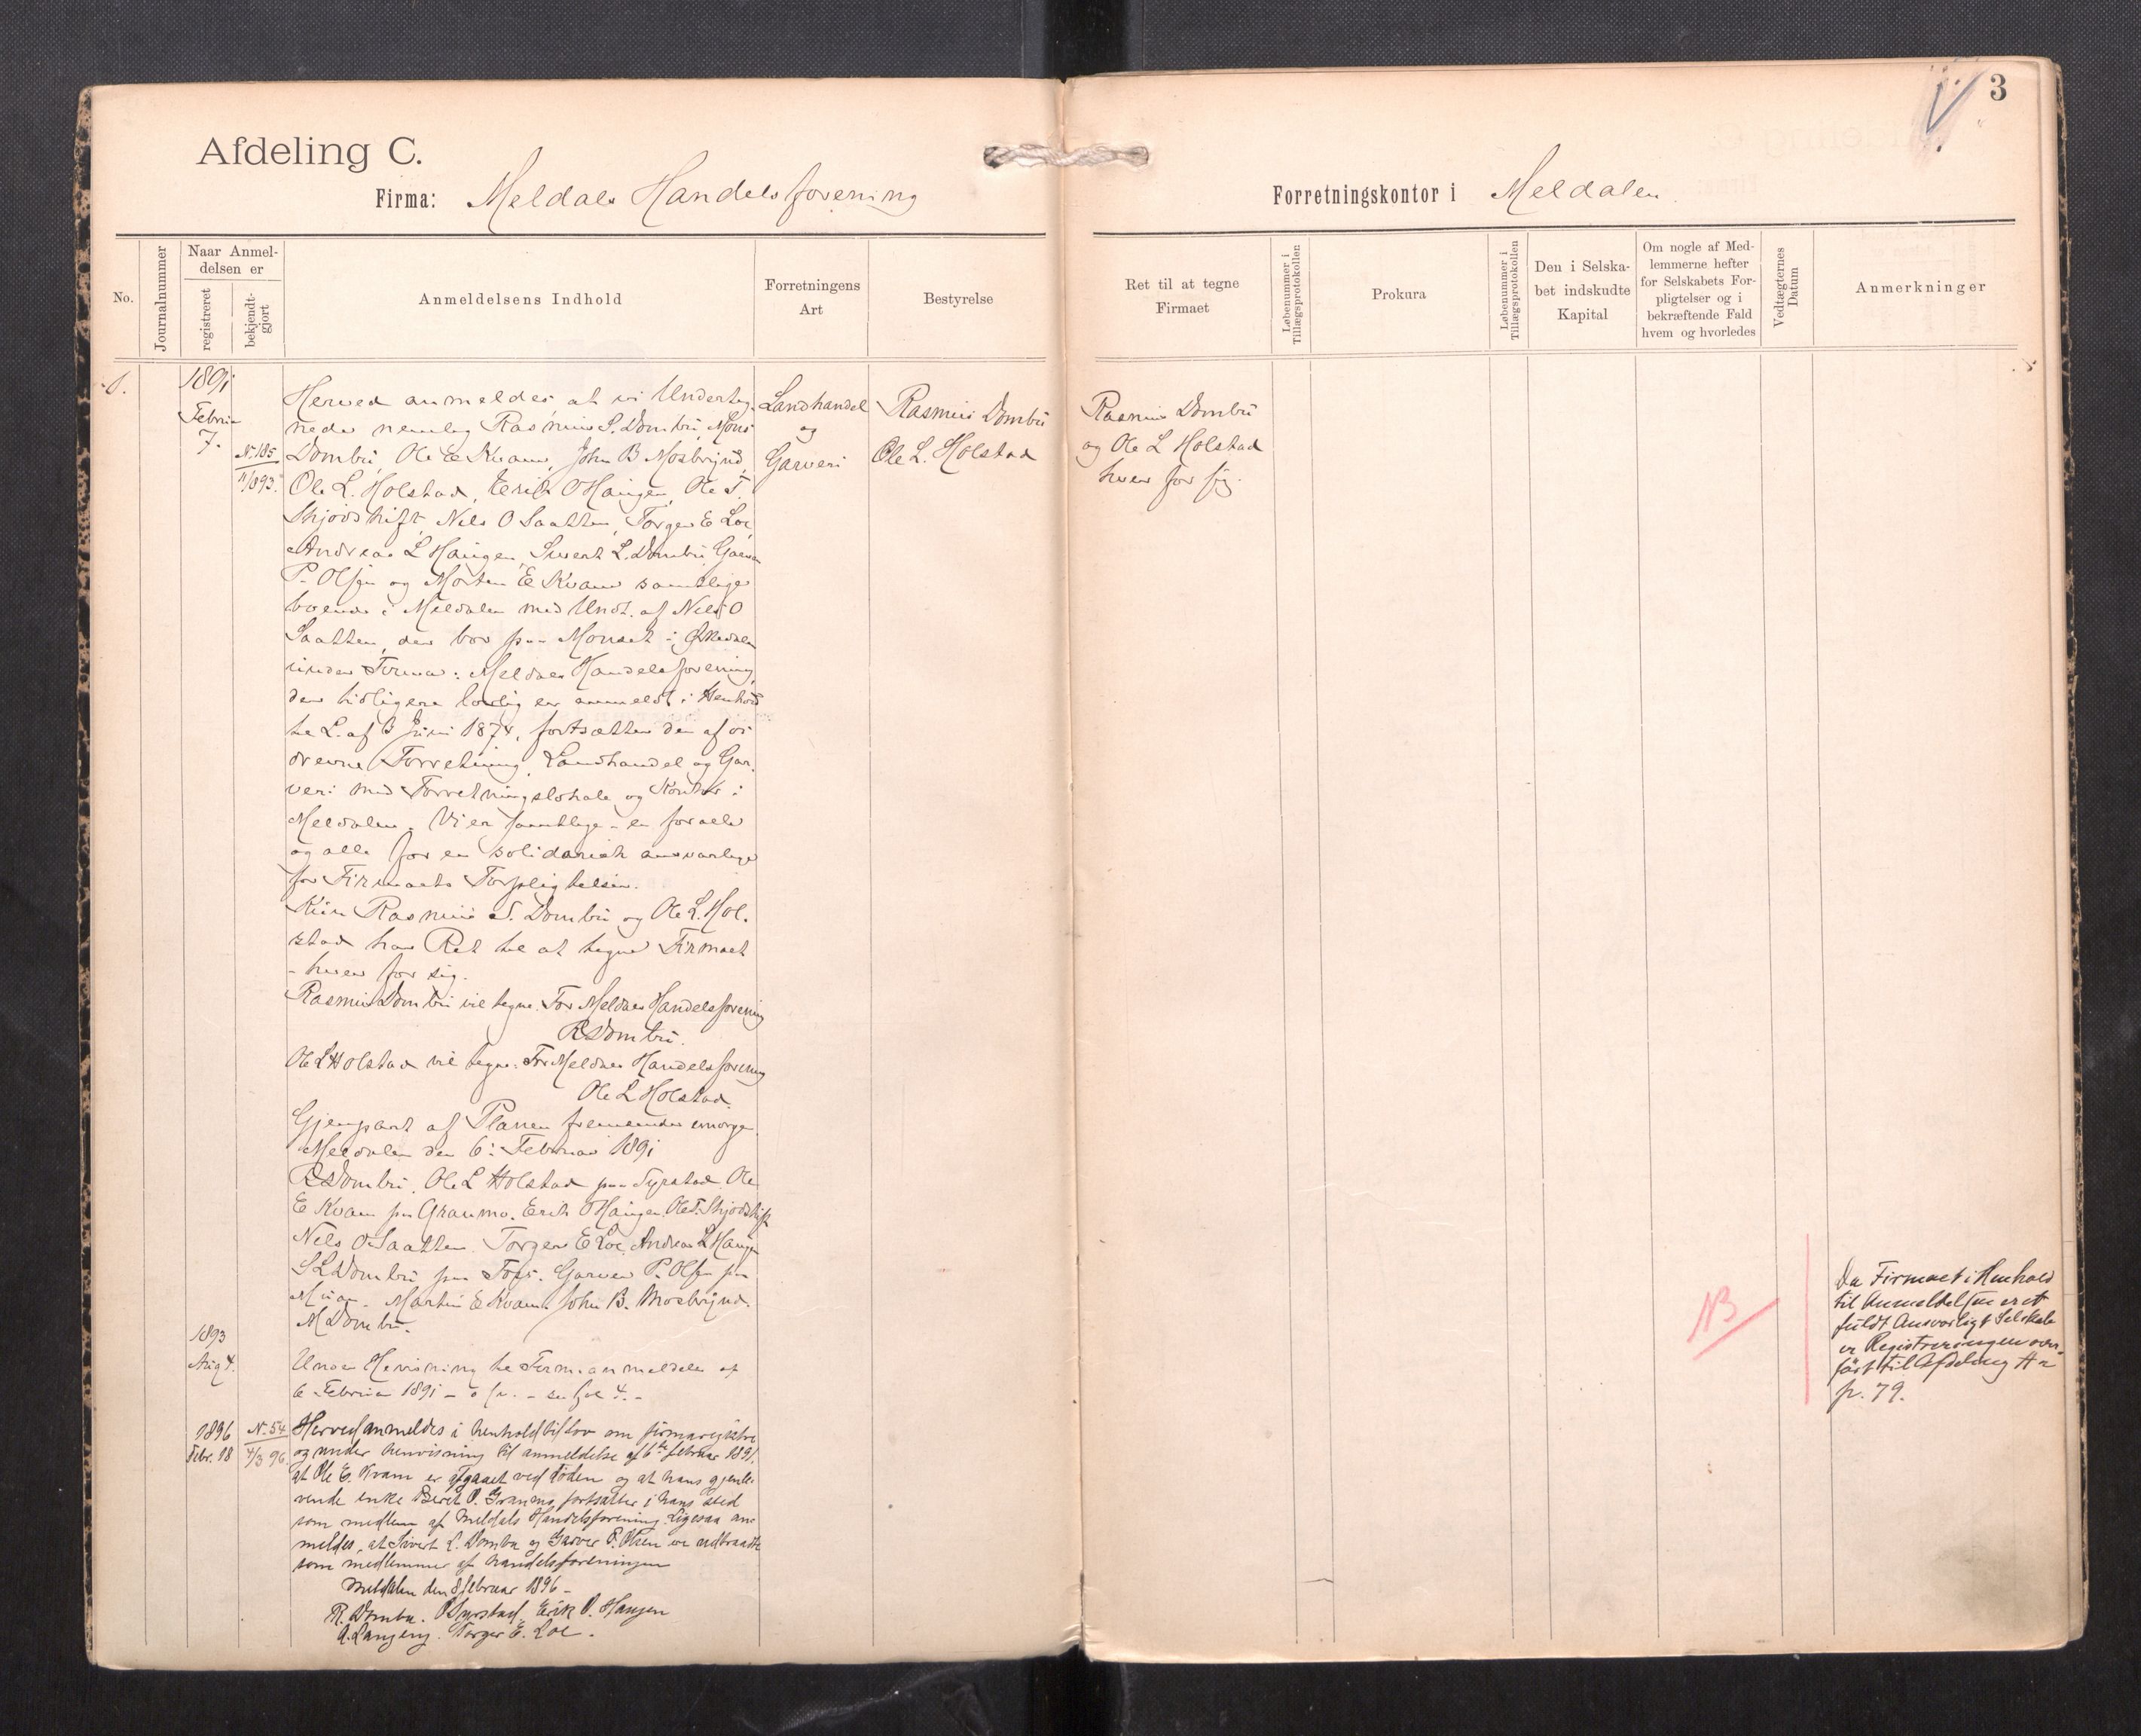 Afdeling C.
Firma: Meldals Handelsforening
No.
Journalnummer
Naar Anmel-
delsen er
registreret
bekjendt-
gjort
Anmeldelsens Indhold
Forretningens
Art
Bestyrelse
1.
1891
Februar
7.
No. 185
1893.
Herved anmeldes, at vi Underteg-
nede nemlig Rasmus S. Dombu, Mons
Dombu, Ole E Kvam, John B Mosbrynd,
Ole L. Holstad, Erik O Haugen, Ole T.
Skjødskift, Nils O Saatten, Torger E Loe,
Andreas L Haugen, Sivert L. Dombu, Garver
P. Olsen og Morten E Kvam samtlige
boende i Meldalen med Undt. af Nils O
Saatten, der bor paa Monset i Ørkedalen
under Firma: Meldals Handelsforening,
der tidligere lovlig er anmeldt i Henhold
til L. af 3 Juni 1874, fortsætter den af os
drevne Forretning, Landhandel og Gar-
veri med Forretningslokale og Kontor i
Meldalen. Vi er samtlige - en for alle
og alle for en solidarisk ansvarlige
for Firmaets Forpligtelser.
Kun Rasmus S. Dombu og Ole L. Hol-
stad har Ret til at tegne Firmaet
- hver for sig.
Rasmus Dombu vil tegne: For Meldals Handelsforening
RSDombu.
Ole L Holstad vil tegne: For Meldals Handelsforening
Ole L Holstad.
Gjenpart af Planen
Meldalen den 6. Februar 1891
RSDombu, Ole L Holstad paa Syrstad, Ole
E Kvam paa Granmo. Erik O Haugen. Ole T. Skjødskift
Nils O Saatten. Torger E Loe, Andreas L Haugen
SLDombu paa Garver P. Olsen paa
Muan. Martin E Kvam. John B. Mosbrynd.
MDombu.
1893
Aug 4.
Under Henvisning til Firmaanmeldelse af
6 Februar 1891 - se fol 4. -
1896
Febr. 18
No. 54
4/3 96.
Herved anmeldes i henhold til lov om firmaregistre
og under henvisning til anmeldelse af 6te februar 1891,
at Ole E. Kvam er afgaaet ved døden og at hans gjenle-
vende enke Berit O. Granmo fortsætter i hans sted
som medlem af Meldals Handelsforening. Ligesaa an-
meldes, at Sivert L. Dombu og Garver P. Olsen er udtraadt
som medlemmer af handelsforeningen
Meldalen den 8 februar 1896 -
R. Dombu. O Syrstad. Erik O. Haugen
A. Langeng. Torger E. Loe.
Landhandel
og
Garveri
Rasmus Dombu
Ole L. Holstad
3
Forretningskontor i Meldalen
Ret til at tegne
Firmaet
Løbenummer i
Tillægsprotokollen
Prokura
Løbenummer i
Tillægsprotokollen
Den i Selska-
bet indskudte
Kapital
Om nogle af Med-
lemmerne hefter
for Selskabets For-
pligtelser og i
bekræftende Fald
hvem og hvorledes
Vedtægternes
Datum
Anmerkninger
Rasmus Dombu
og Ole L Holstad
hver for sig.
NB
Da Firmaet i Henhold
til Anmeldelsen er et
fuldt Ansvarligt Selskab
er Registreringen over-
ført til Afdeling A
p. 79.